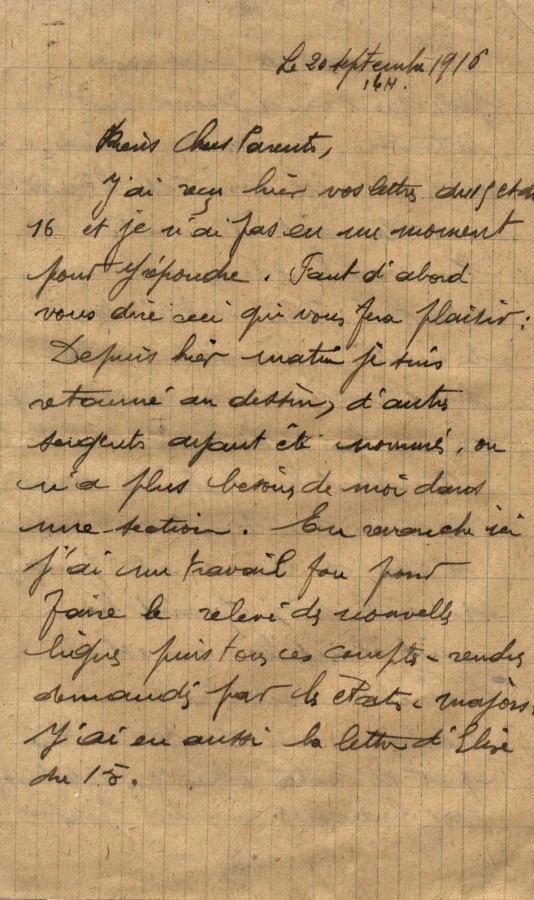 Le 20 septembre 1916
16H.
Biens Chers Parents,
J'ai reçu hier vos lettres du 15 et du
16 et je n'ai pas eu un moment
pour y répondre. Tout d'abord
vous dire ceci qui vous fera plaisir :
Depuis hier matin je suis
retourné au dessin, d'autres
sergents ayant été nommés, on
n'a plus besoin de moi dans
une section. En revanche ici
j'ai un travail fou pour
faire le relevé des nouvelles
lignes puis tous ces comptes-rendus
demandés par les Etats-majors.
J'ai eu aussi la lettre d'Elise
du 15.